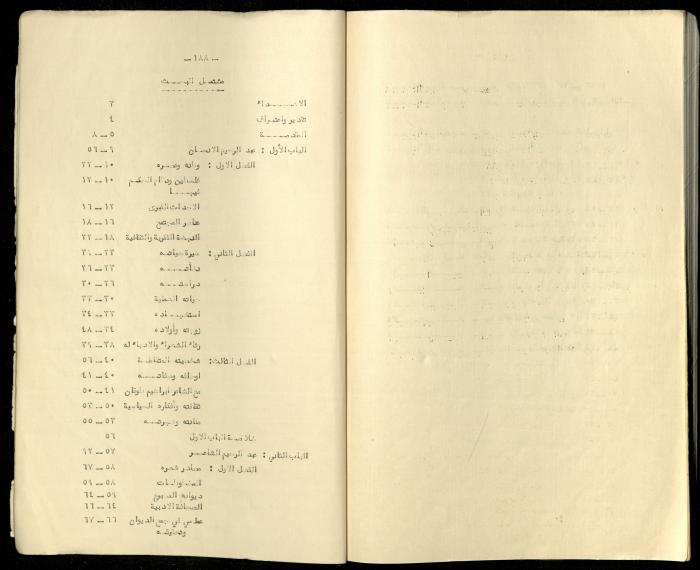 — ١٨٨ —
مشتمل البحث
الاهـــداء ٣
تقدير واعتراف ٤
المقدمـــة ٥ — ٨
الباب الأول : عبد الرحيم الانسان ٩ — ٥٦
الفصل الاول : وطنه وعصره ١٠ — ٢٢
فلسطين ونظام الحكم ١٠ — ١٢
فيهـــا
الاحداث الكبرى ١٢ — ١٦
عناصر المجتمع ١٦ — ١٨
النهضة الفكرية والثقافية ١٨ — ٢٢
الفصل الثاني : سيرة حياتـه ٢٣ — ٣٩
نشأتـــه ٢٣ — ٢٦
دراستـــه ٢٦ — ٣٠
حياته العملية ٣٠ — ٣٢
استشهـــاده ٣٢ — ٣٤
زوجته وأولاده ٣٤ — ٤٨
رثاء الشعراء والادباء له ٣٨ — ٣٩
الفصل الثالث: شخصيته ٤٠ — ٥٦
اوصافه ٤٠ — ٤١
مع الشاعر ابراهيم طوقان ٤١ — ٥٠
ثقافته وأفكاره السياسية ٥٠ — ٥٣
٥٣ — ٥٥
خلاصة الباب الاول ٥٦
الباب الثاني : عبد الرحيم الشاعـر ٥٧ — ٩٢
الفصل الاول : مصادر شعره ٥٨ — ٦٧
المخطوطـات ٥٨ — ٥٩
ديوانه المطبوع ٥٩ — ٦٤
الصحافة الادبية ٦٤ — ٦٦
في جمع الديوان ٦٦ — ٦٧
وتحقيقـه